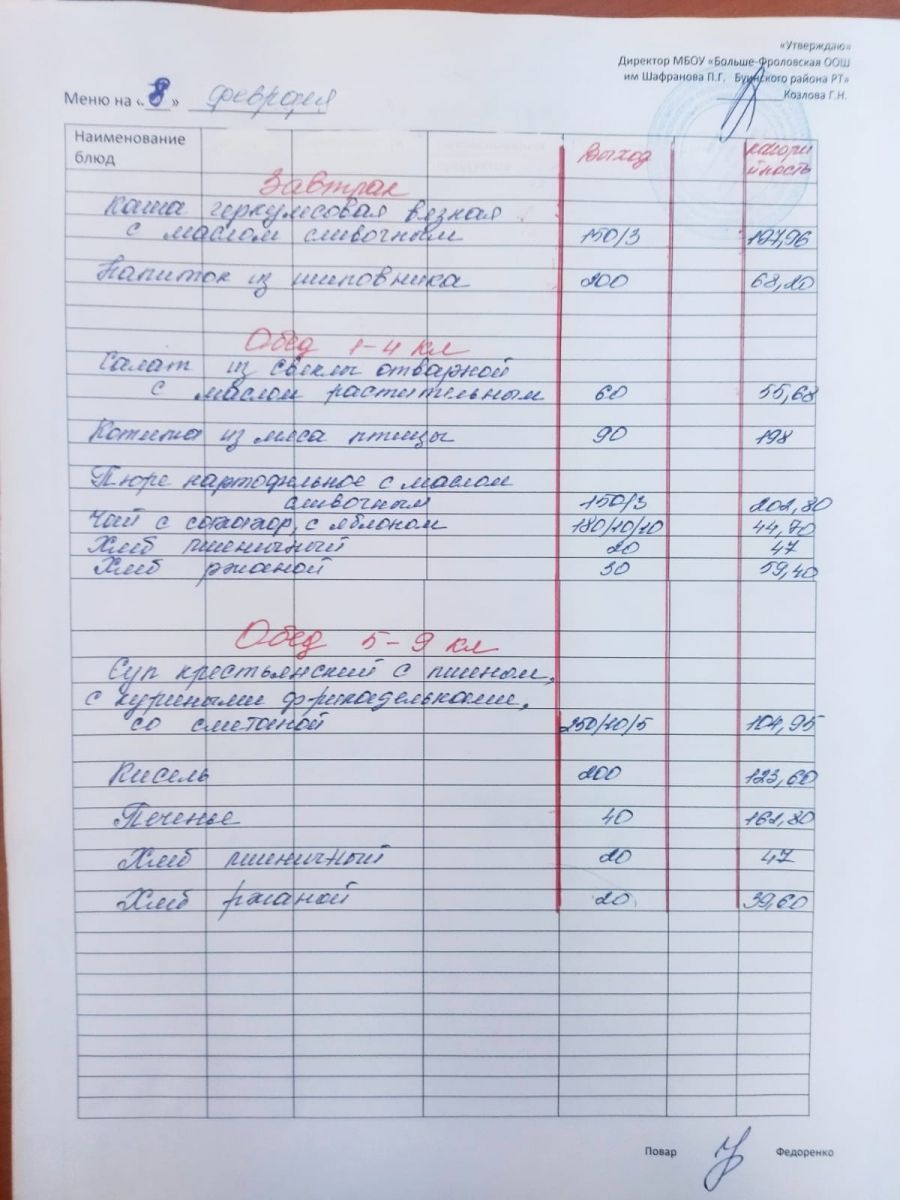 «Утверждаю»
Директор МБОУ «Больше-Фроловская ООШ
им Шафранова П.Г. Буинского района РТ»
Козлова Г.Н.
Меню на «8» февраля
Наименование блюд Выход калорийность
Завтрак
Каша геркулесовая вязкая
с маслом сливочным 150/3
Напиток из шиповника 200 68,20
Обед 1-4 кл
Салат из свеклы отварной
с маслом растительным 60 55,68
Котлета из мяса птицы 90 198
Пюре картофельное с маслом
сливочным 150/3 202,80
Чай с сахаром, с яблоком 180/10/10 44,70
Хлеб пшеничный 20 47
Хлеб ржаной 30 59,40
Обед 5-9 кл
Суп крестьянский с пшеном,
с куриными фрикадельками,
со сметаной 250/10/5 104,95
Кисель 200 123,60
Печенье 40 162,80
Хлеб пшеничный 20 47
Хлеб ржаной 20 39,60
Повар Федоренко